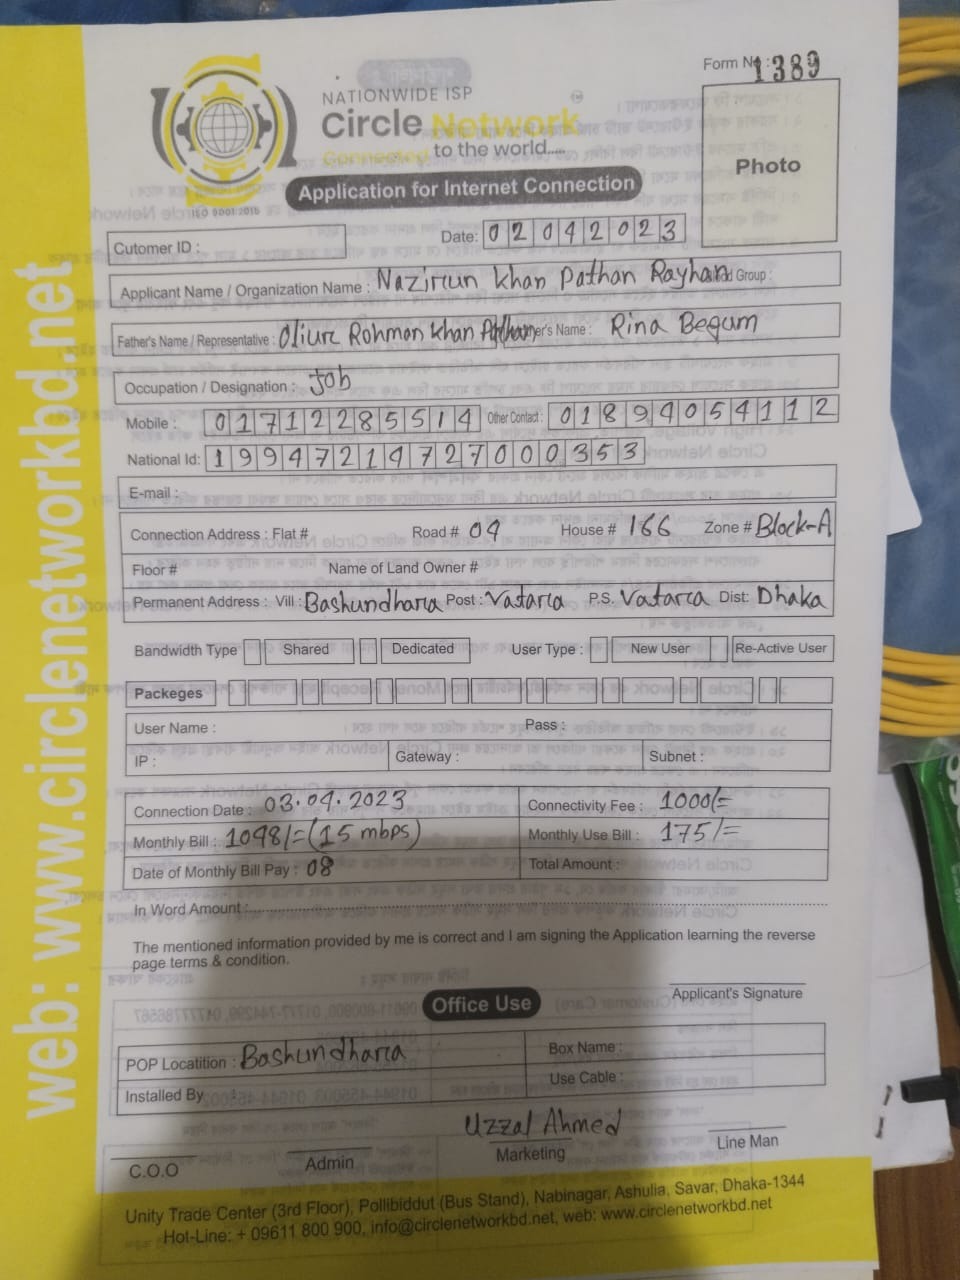 Form No : 1389
NATIONWIDE ISP
Circle Network
Connected to the world.....
ISO 9001:2015
Application for Internet Connection
Photo
Cutomer ID :
Date: 02042023
Applicant Name / Organization Name : Nazirun Khan Pathan Rayhan Group :
Father's Name / Representative : Oliur Rohman Khan Pathan Name : Rina Begum
Occupation / Designation : Job
Mobile : 01712285514 Other Contact : 01894054112
National Id: 19947214727000353
E-mail :
Connection Address : Flat # Road # 09 House # 166 Zone # Block-A
Floor # Name of Land Owner #
Permanent Address : Vill : Bashundhara Post : Vatara P.S. Vatara Dist: Dhaka
Bandwidth Type Shared Dedicated User Type : New User Re-Active User
Packeges
User Name : Pass :
IP : Gateway : Subnet :
Connection Date : 03.04.2023 Connectivity Fee : 1000/=
Monthly Bill : 1098/= (15 mbps) Monthly Use Bill : 175/=
Date of Monthly Bill Pay : 08 Total Amount :
In Word Amount :
The mentioned information provided by me is correct and I am signing the Application learning the reverse
page terms & condition.
Applicant's Signature
Office Use
POP Locatition : Bashundhara Box Name :
Installed By : Use Cable :
Uzzal Ahmed
C.O.O Admin Marketing Line Man
Unity Trade Center (3rd Floor), Pollibiddut (Bus Stand), Nabinagar, Ashulia, Savar, Dhaka-1344
Hot-Line: + 09611 800 900, info@circlenetworkbd.net, web: www.circlenetworkbd.net
web: www.circlenetworkbd.net